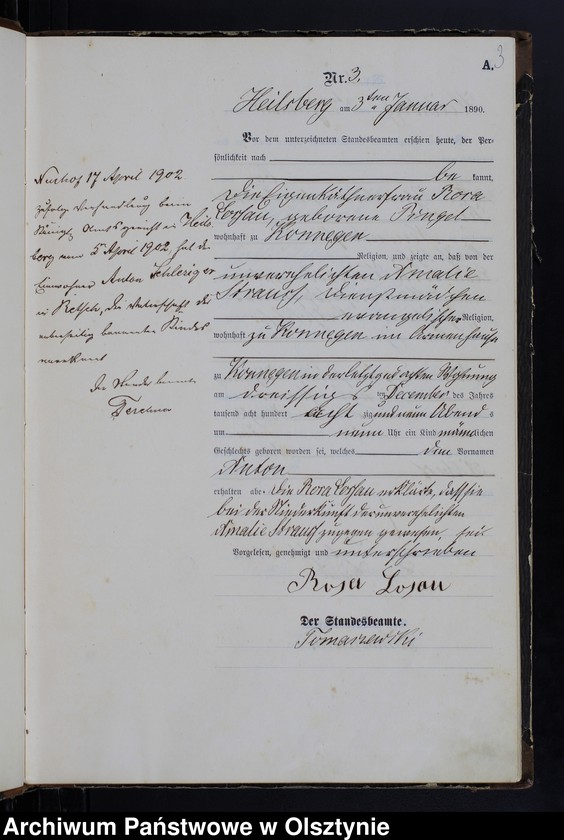 3
A.
Nr. 3.
Heilsberg am 3ten Januar 1890.
Vor dem unterzeichneten Standesbeamten erschien heute, der Per-
sönlichkeit nach
be kannt,
die Eigenkäthnerfrau Rosa
Losau, geborene Pingel
wohnhaft zu Konnegen
Religion, und zeigte an, daß von der
unverehelichten Amalie
Strauß, Dienstmädchen
evangelischer Religion,
wohnhaft zu Konnegen im Armenhause
zu Konnegen in der letztgedachten Wohnung
am dreissig sten December des Jahres
tausend acht hundert acht zig und neun Abend s
um neun Uhr ein Kind männlichen
Geschlechts geboren worden sei, welches den Vornamen
Anton
erhalten habe. Die Rosa Losau erklärte, dass sie
bei der Niederkunft der unverehelichten
Amalie Strauß zugegen gewesen sei.
Vorgelesen, genehmigt und unterschrieben
Rosa Losau
Der Standesbeamte.
Tomaszewski
17 April 1902
zufolge Verhandlung beim
Königl. Amtsgericht in Heils
berg vom 5 April 1902 hat der
Einwohner Anton
in die Vaterschaft des
nebenseitig benannten Kindes
anerkannt
Der Standesbeamte
Archiwum Państwowe w Olsztynie